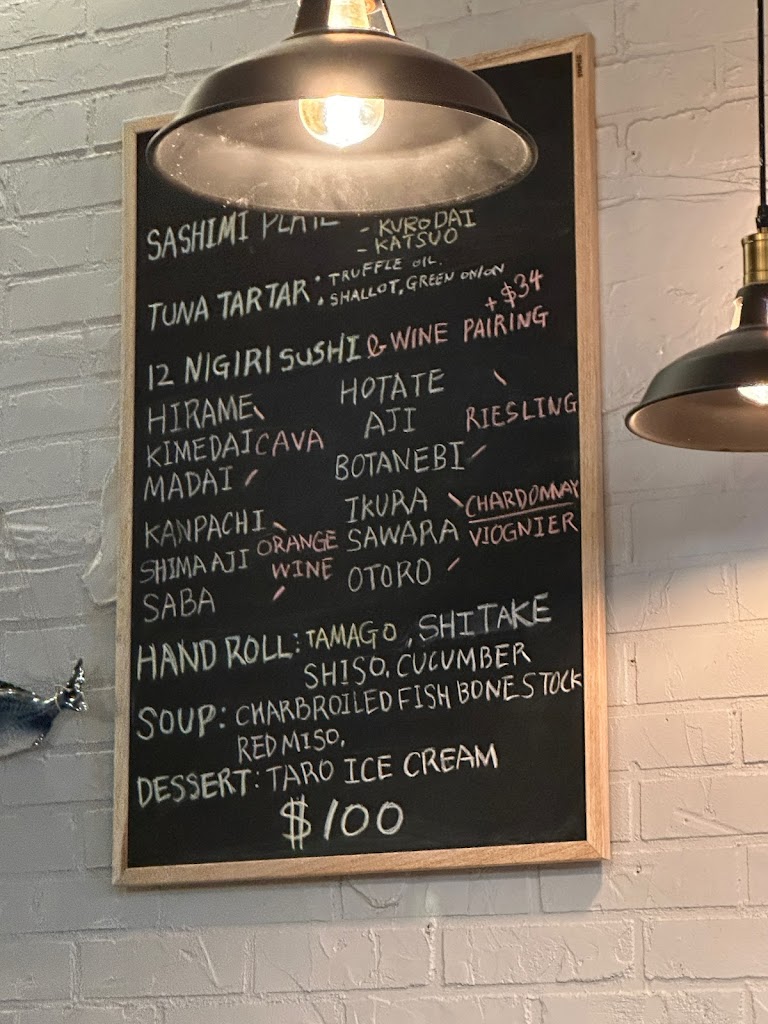 SASHIMI PLATE - KURODAI
- KATSUO
TUNA TARTAR : TRUFFLE OIL.
SHALLOT, GREEN ONION
12 NIGIRI SUSHI & WINE PAIRING + $34
HIRAME HOTATE
KIMEDAI CAVA AJI RIESLING
MADAI BOTANEBI
KANPACHI IKURA CHARDONNAY
SHIMAAJI ORANGE WINE SAWARA VIOGNIER
SABA OTORO
HAND ROLL: TAMAGO, SHITAKE
SHISO, CUCUMBER
SOUP: CHARBROILED FISH BONE STOCK
RED MISO,
DESSERT: TARO ICE CREAM
$100